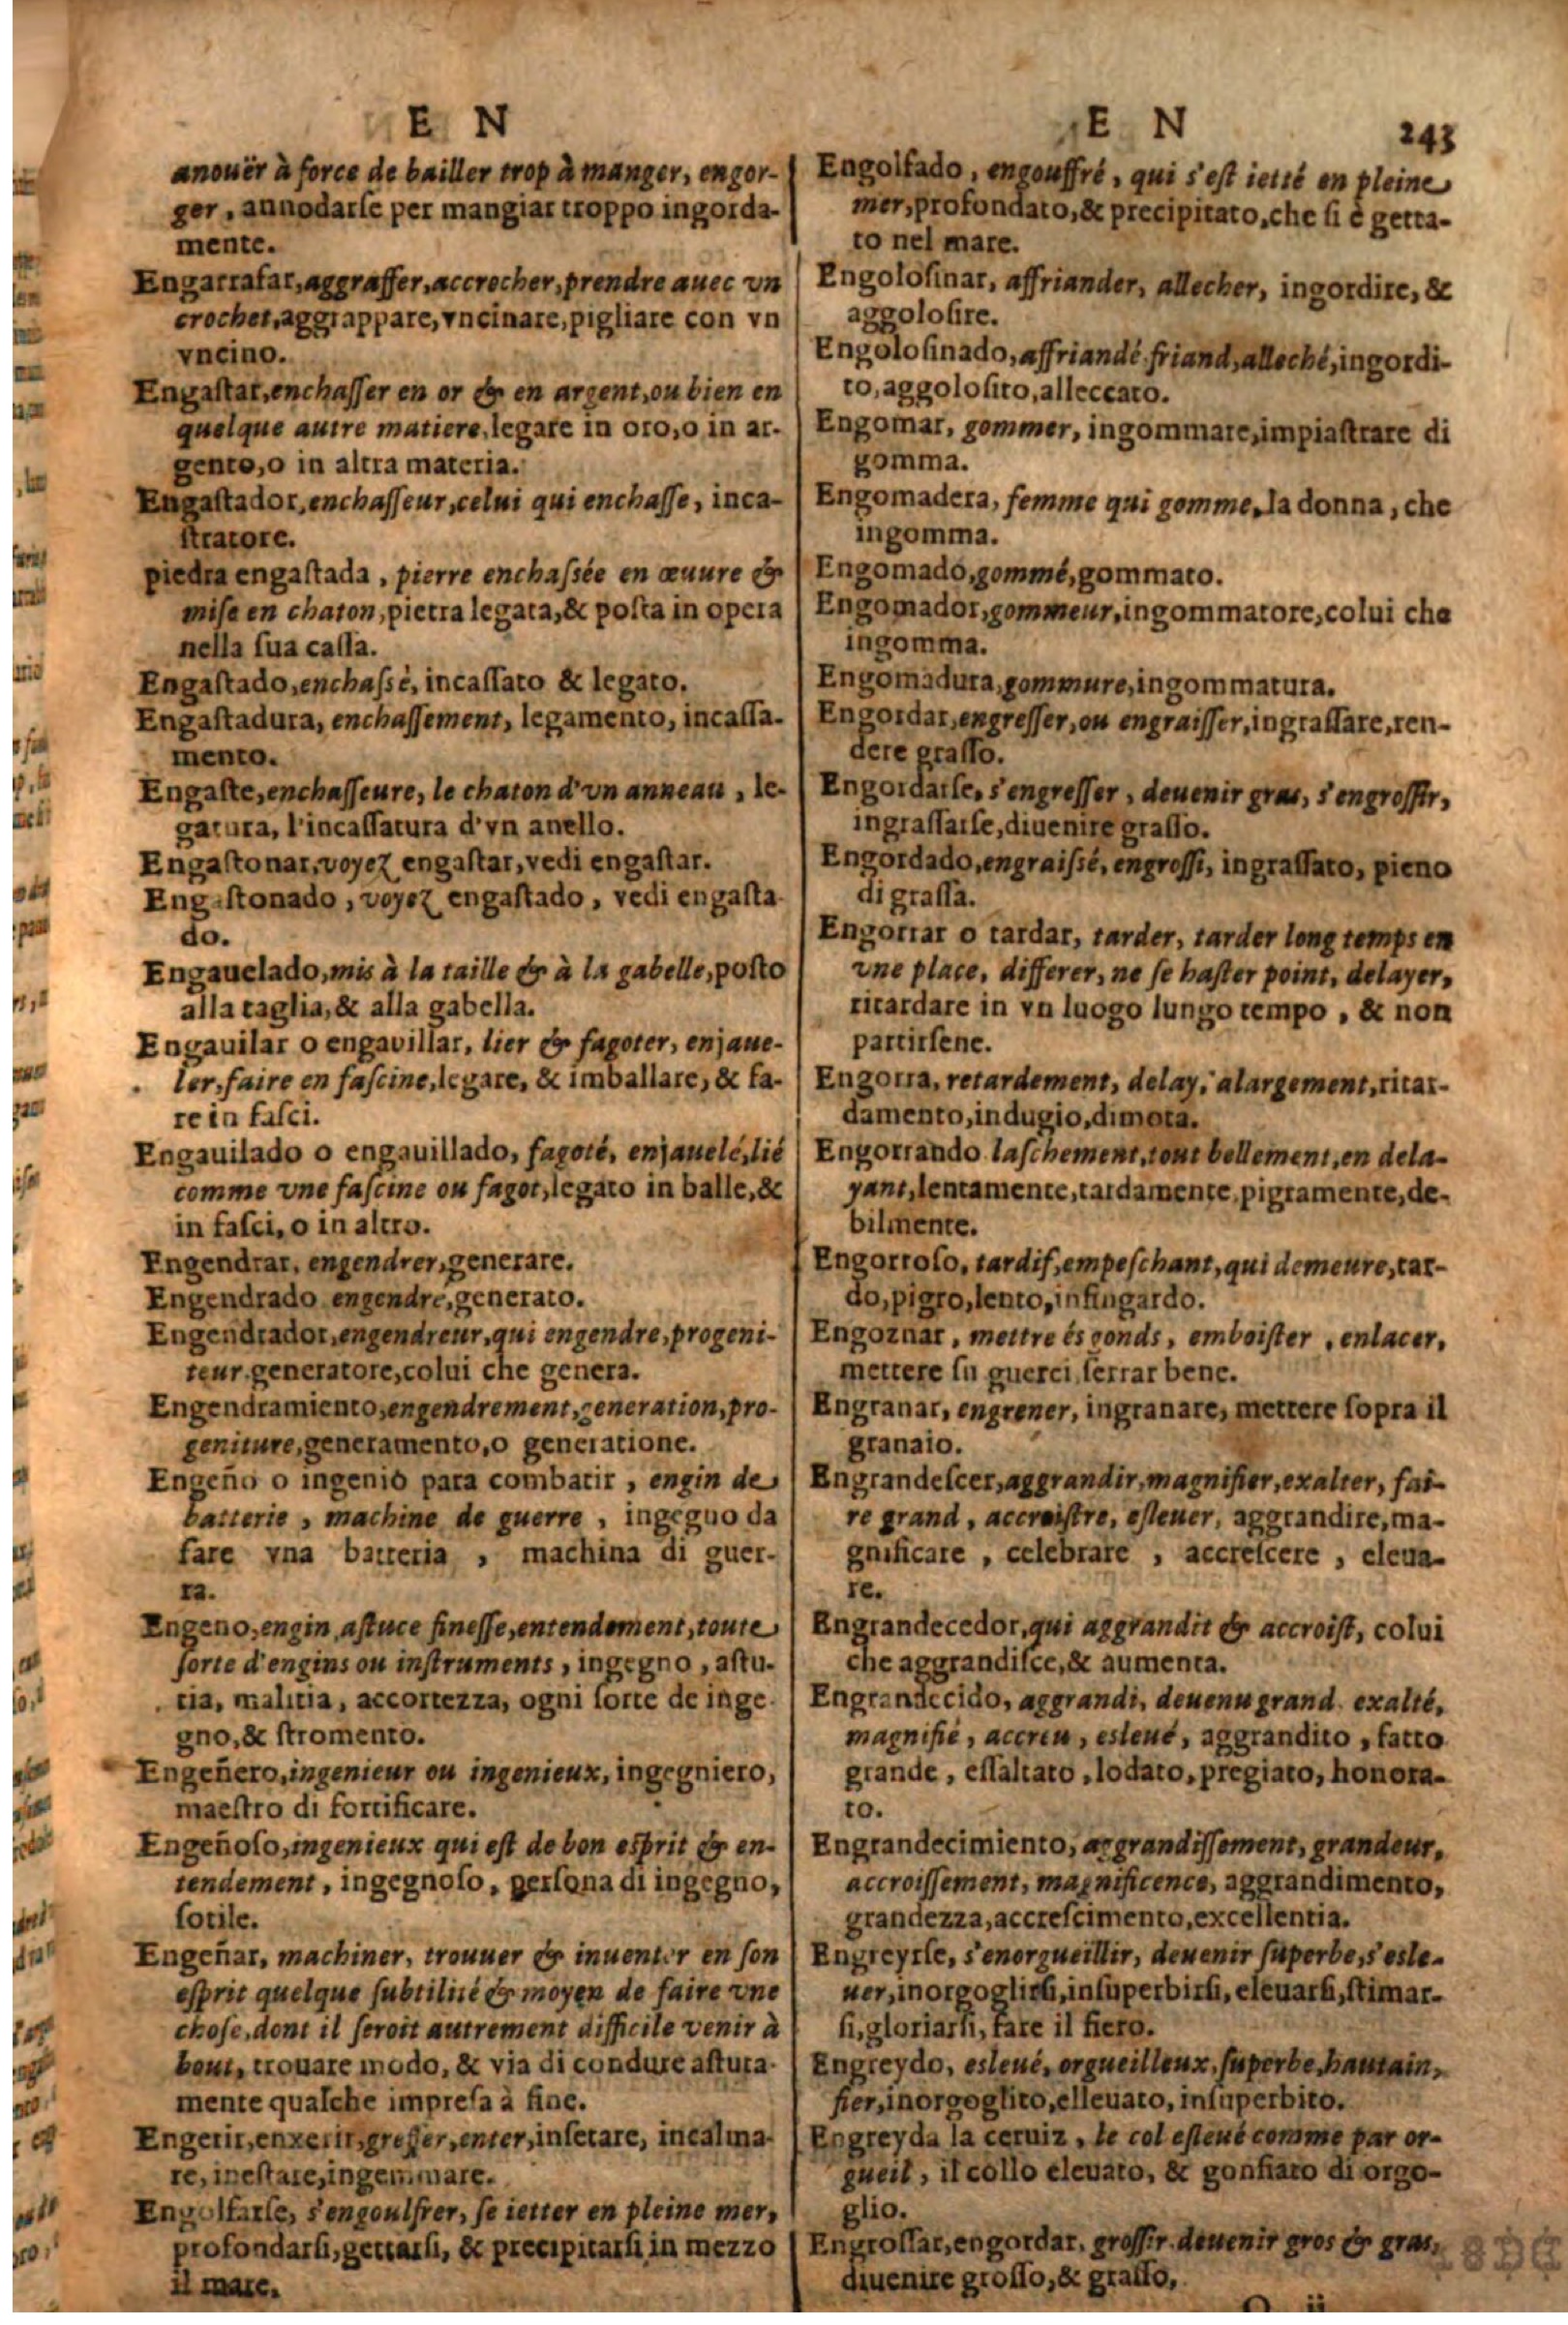 E N
anouër à force de bailler trop à manger, engor-
ger, annodarſe per mangiar troppo ingorda-
mente.
Engarrafar, aggraffer, accrocher, prendre auec vn
crochet, aggrappare, vncinare, pigliare con vn
vncino.
Engaſtar, enchaſſer en or & en argent, ou bien en
quelque autre matiere, legare in oro, o in ar-
gento, o in altra materia.
Engaſtador, enchaſſeur, celui qui enchaſſe, inca-
ſtratore.
piedra engaſtada, pierre enchaſsée en œuure &
miſe en chaton, pietra legata, & poſta in opera
nella ſua caſſa.
Engaſtado, enchaſsè, incaſſato & legato.
Engaſtadura, enchaſſement, legamento, incaſſa-
mento.
Engaſte, enchaſſeure, le chaton d'vn anneau, le-
gatura, l'incaſſatura d'vn anello.
Engaſtonar, voyez engaſtar, vedi engaſtar.
Engaſtonado, voyez engaſtado, vedi engaſta-
do.
Engauelado, mis à la taille & à la gabelle, poſto
alla taglia, & alla gabella.
Engauilar o engavillar, lier & fagoter, enjaue-
ler, faire en faſcine, legare, & imballare, & fa-
re in faſci.
Engauilado o engauillado, fagoté, enjauelé, lié
comme vne faſcine ou fagot, legato in balle, &
in faſci, o in altro.
Engendrar, engendrer, generare.
Engendrado engendré, generato.
Engendrador, engendreur, qui engendre, progeni-
teur generatore, colui che genera.
Engendramiento, engendrement, generation, pro-
geniture, generamento, o generatione.
Engeño o ingenio para combatir, engin de
batterie, machine de guerre, ingeguo da
fare vna batteria, machina di guer-
ra.
Engeno, engin aſtuce fineſſe, entendement, toute
ſorte d'engins ou inſtruments, ingegno, aſtu-
tia, malitia, accortezza, ogni ſorte de inge-
gno, & ſtromento.
Engeñero, ingenieur ou ingenieux, ingegniero,
maeſtro di fortificare.
Engeñoſo, ingenieux qui eſt de bon eſprit & en-
tendement, ingegnoſo, perſona di ingegno,
ſotile.
Engeñar, machiner, trouuer & inuenter en ſon
eſprit quelque ſubtilité & moyen de faire vne
choſe, dont il ſeroit autrement difficile venir à
bout, trouare modo, & via di condure aſtuta-
mente qualche impreſa à fine.
Engerir, enxerir, greffer, enter, inſetare, incalma-
re, ineſtare, ingemmare.
Engolfarſe, s'engoulfrer, ſe ietter en pleine mer,
profondarſi, gettarſi, & precipitarſi in mezzo
il mare.
E N 243
Engolfado, engouffré, qui s'eſt ietté en pleine
mer, profondato, & precipitato, che ſi è getta-
to nel mare.
Engoloſinar, affriander, allecher, ingordire, &
aggoloſire.
Engoloſinado, affriandé friand, alleché, ingordi-
to, aggoloſito, alleccato.
Engomar, gommer, ingommare, impiaſtrare di
gomma.
Engomadera, femme qui gomme, la donna, che
ingomma.
Engomado, gommé, gommato.
Engomador, gommeur, ingommatore, colui che
ingomma.
Engomadura, gommure, ingommatura.
Engordar, engreſſer, ou engraiſſer, ingraſſare, ren-
dere graſſo.
Engordarſe, s'engreſſer, deuenir gras, s'engroſſir,
ingraſſarſe, diuenire graſſo.
Engordado, engraiſsé, engroſſi, ingraſſato, pieno
di graſſa.
Engorrar o tardar, tarder, tarder long temps en
vne place, differer, ne ſe haſter point, delayer,
ritardare in vn luogo lungo tempo, & non
partirſene.
Engorra, retardement, delay, alargement, ritar-
damento, indugio, dimora.
Engorrando laſchement, tout bellement, en dela-
yant, lentamente, tardamente pigramente, de-
bilmente.
Engorroſo, tardif, empeſchant, qui demeure, tar-
do, pigro, lento, infingardo.
Engoznar, mettre és gonds, emboiſter, enlacer,
mettere ſu guerci ſerrar bene.
Engranar, engrener, ingranare, mettere ſopra il
granaio.
Engrandeſcer, aggrandir, magnifier, exalter, fai-
re grand, accroiſtre, eſleuer, aggrandire, ma-
gnificare, celebrare, accreſcere, eleua-
re.
Engrandecedor, qui aggrandit & accroiſt, colui
che aggrandiſce, & aumenta.
Engrandecido, aggrandi, deuenu grand exalté,
magnifié, accreu, esleué, aggrandito, fatto
grande, eſſaltato, lodato, pregiato, honora-
to.
Engrandecimiento, aggrandiſſement, grandeur,
accroiſſement, magnificence, aggrandimento,
grandezza, accreſcimento, excellentia.
Engreyrſe, s'enorgueillir, deuenir ſuperbe, s'esle-
uer, inorgoglirſi, inſuperbirſi, eleuarſi, ſtimar-
ſi, gloriarſi, fare il fiero.
Engreydo, esleué, orgueilleux, ſuperbe, hautain,
fier, inorgoglito, elleuato, inſuperbito.
Engreyda la ceruiz, le col eſleué comme par or-
gueil, il collo eleuato, & gonfiato di orgo-
glio.
Engroſſar, engordar, groſſir deuenir gros & gras,
diuenire groſſo, & graſſo,